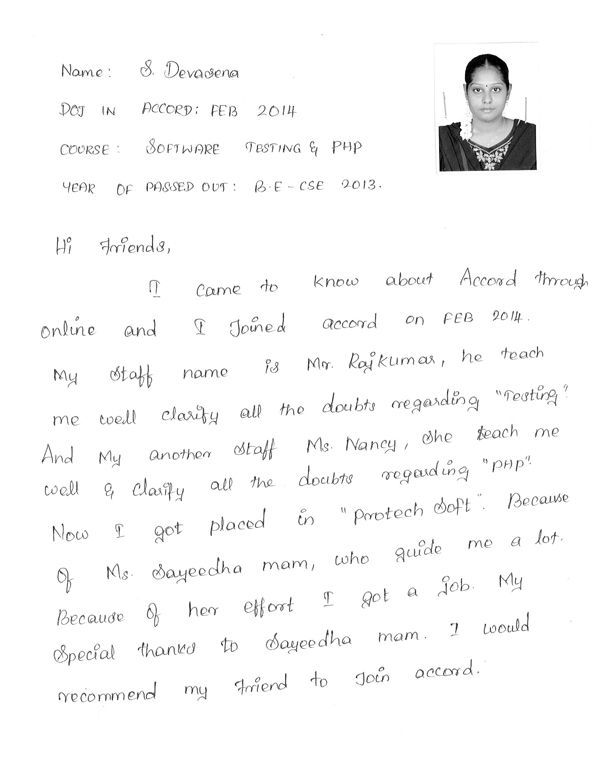 Name: S. Devasena
DOJ IN ACCORD: FEB 2014
COURSE: SOFTWARE TESTING & PHP
YEAR OF PASSED OUT: B.E-CSE 2013.
Hi Friends,
I came to know about Accord through
online and I Joined accord on FEB 2014.
My staff name is Mr. Rajkumar, he teach
me well clarify all the doubts regarding "Testing".
And My another staff Ms. Nancy, she teach me
well & clarify all the doubts regarding "PHP".
Now I got placed in "Protech Soft". Because
Of Ms. Sayeedha mam, who guide me a lot.
Because Of her effort I got a job. My
Special thanks to Sayeedha mam. I would
recommend my Friend to Join accord.